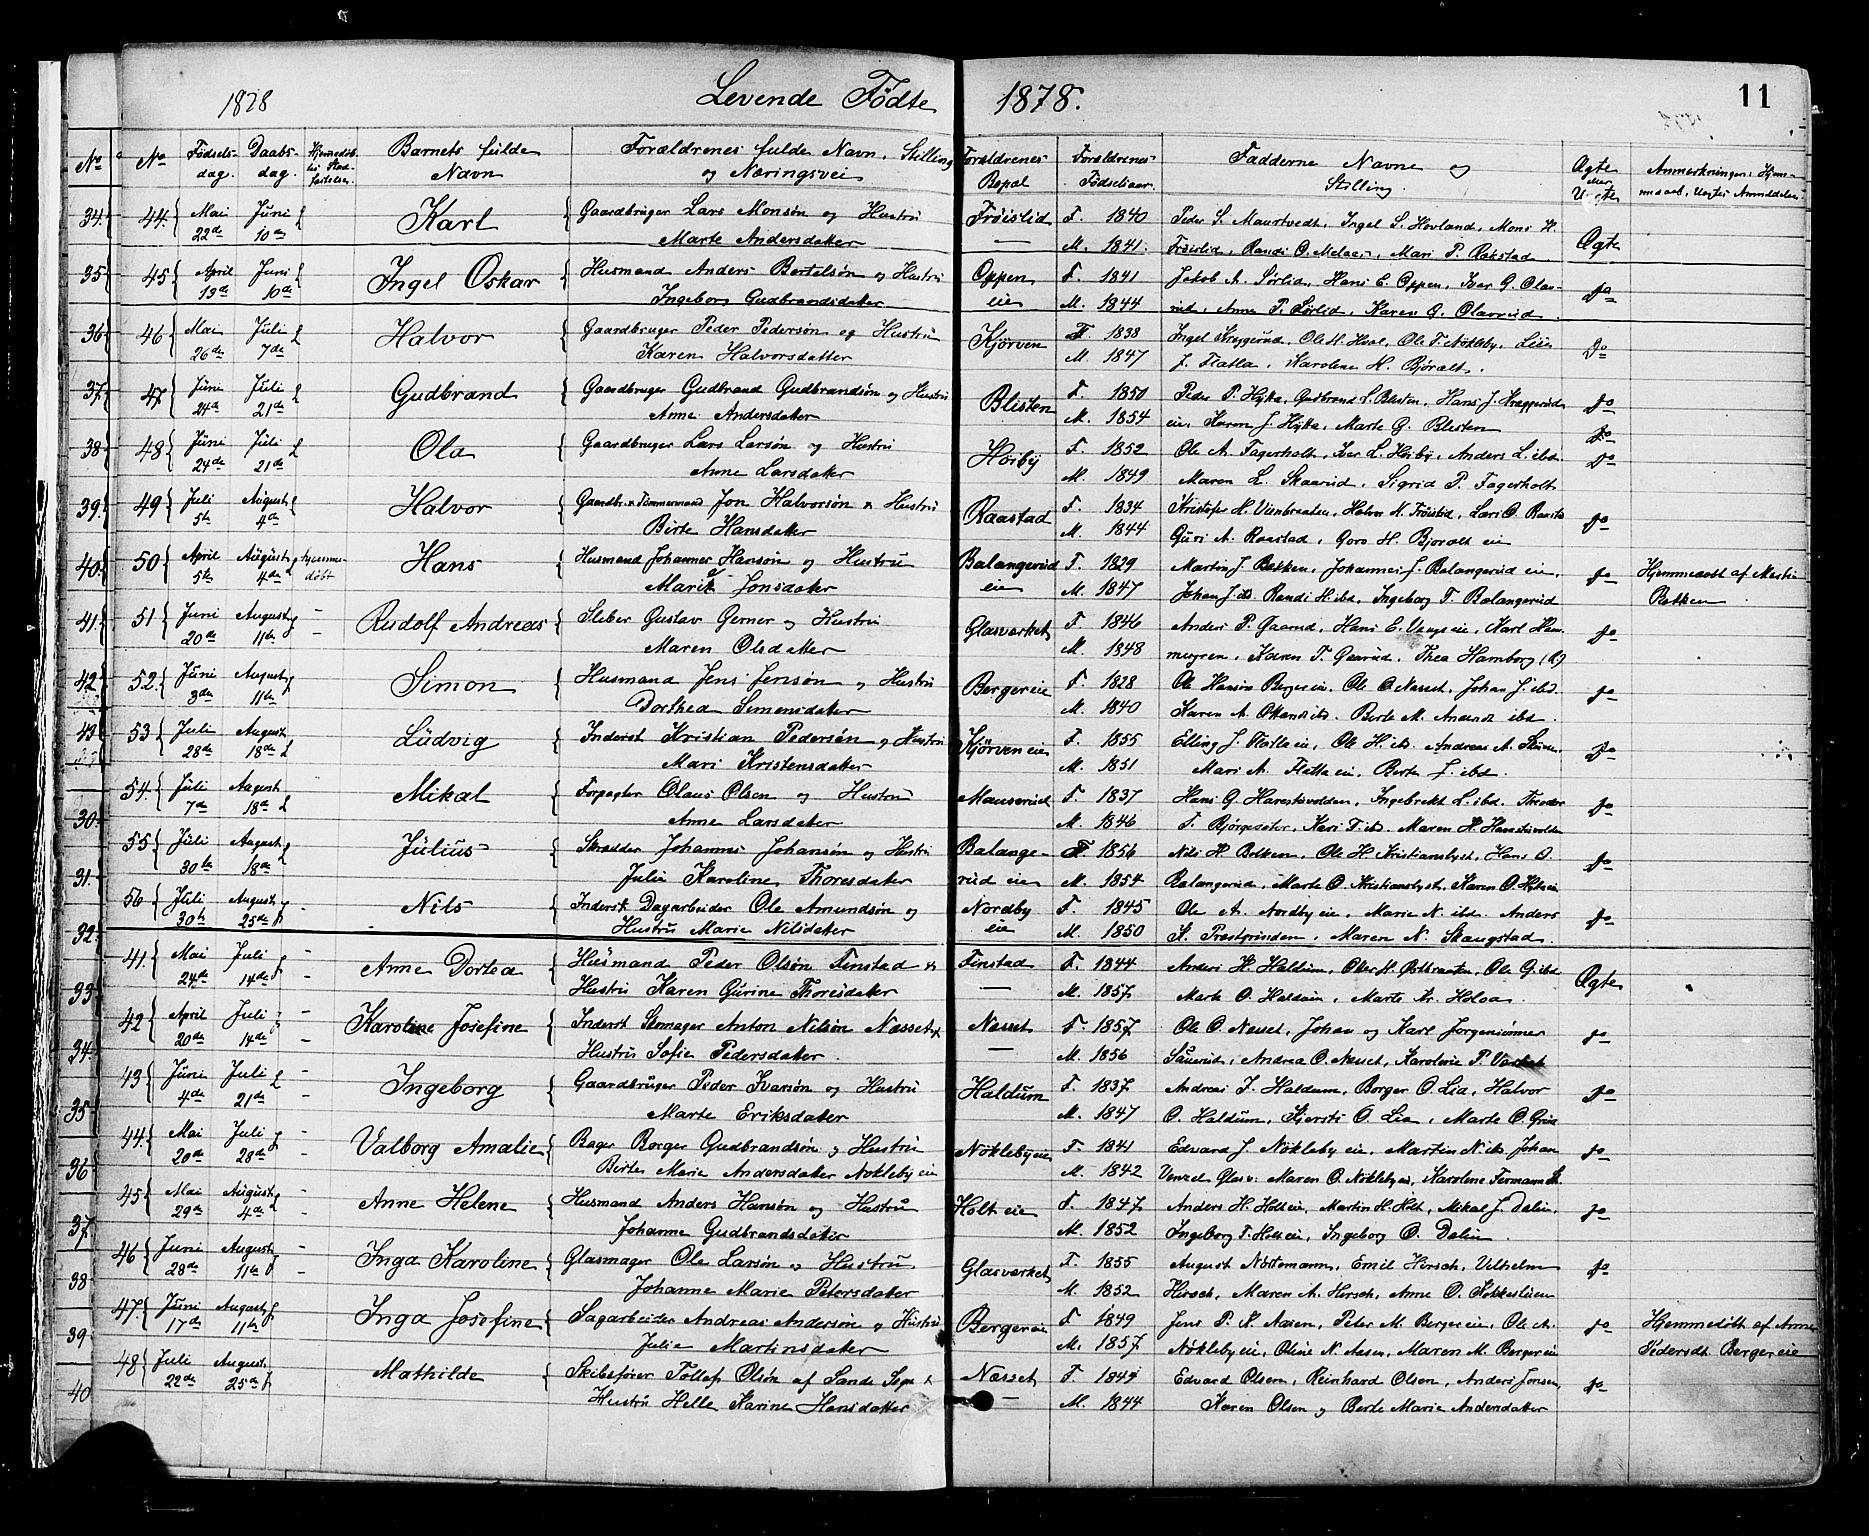 1878 Levende Fødte 1878. 11
No No Fødsels- Daabs- Barnets fulde Forældrenes fulde Navn, Stilling Forældrenes Forældrenes Faddernes Navne og Ægte
dag. dag. Navn og Næringsvei Bopæl Fødselsaar. Stilling. eller Uægte
34. 44. Mai Juni Karl Gaardbruger Lars Monsøn og Hustru Frøislid F. 1840 Peder S. Maurtvedt, Ingel S. Hovland, Mons H.
22de 10de Marte Andersdatter — M. 1841. Frøislid, Randi O. Melaas, Mari P. Rakstad Ægte
35 45 April Juni Ingel Oskar Husmand Anders Bertelsøn og Hustru Oppen F. 1841 Jakob A. Sørlid, Hans E. Oppen, Iver G. Olas-
19de 10de Ingeborg Gudbrandsdatter eie M. 1844 rud, Anne P. Sørlid, Karen G. Olasrud. do
36 46 Mai Juli Halvor Gaardbruger Peder Pedersøn og Hustru Kjørven F. 1838 Ingel Kraggerud, Ole H. Hval, Ole T. Nökleby, Lise
26de 7de Karen Halvorsdatter M. 1847 J. Flatla, Karolene H. Björalt. do
37 47 Juni Juli Gudbrand Gaardbruger Gudbrand Gudbrandsøn og Hustru Blisten F. 1850 Peder P. Hykke, Gudbrand L. Blesten, Hans J. Kraggerud do
24de 21de Anne Andersdatter M. 1854 eie, Karen J. Hykke, Marte G. Blesten do
38 48 Juni Juli Ola Gaardbruger Lars Larsøn og Hustru Hörby F. 1852 Ole A. Fagerholt, Iver L. Hörby, Anders L. ibd. do
24de 21de Anne Larsdatter M. 1849 Maren L. Skaarud, Sigrid P. Fagerholt
39. 49 Juli August Halvor Gaardbr. & Tømmermand Jon Halvorsøn & Hustru Raastad F. 1834 Kristofer H. Vienbraaten, Halvor N. Frøislid, Lars O. Raasta
5te 4de Birte Hansdatter M. 1844 Guri A. Raastad, Goro H. Björalt eie do
40. 50 April August Hjemme- Hans Husmand Johannes Hansøn og Hustru Balangerud F. 1829 Martin J. Bakken, Johannes J. Balangerud eie, do Hjemmedöbt af Martin
5te 4de døbt Marie Jonsdatter eie M. 1847 Johan J. ib. Randi H. ibd, Ingeborg T. Balangerud Bakken.
41. 51 Juni August - Rudolf Andreas Sleber Gustav Gerner og Hustru Glasværket F. 1846 Anders P. Gaarud, Hans E. Vangs eie, Karl Ham- do
20de 11te - Maren Olsdatter M. 1848 mergren, Karen T. Gaarud, Thea Hamborg
42 52. Juni August Simon Husmand Jens Jensøn og Hustru Bergereie F. 1828 Ole Hansøn Bergereie, Ole O. Nasset, Johan J. ibd. do
3de 11te Dorthea Simensdatter M. 1840 Karen A. ibd. Berte M. Andersd. ibd.
43 53 Juli August Ludvig Inderst Kristian Pedersøn og Hustru Kjørven eie F. 1855 Elling J. Flatla eie, Ole H. ib. Andreas A. do
28de 18de Mari Kristensdatter M. 1851 Mari A. Flatla eie, Berte J. ibd.
54. Juli August Mikal Forpagter Olaus Olsen og Hustru Mauserud F. 1837 Hans G. Harestuvolden, Ingebrekt L. ibd. Theodor do
30. 7de 18de Anne Larsdatter M. 1846 T. Bjørgesæter, Kari T. ib. Maren H. Harestuvolden
55 Juli August Julius Skrædder Johannes Johansøn og Hustru Balange- F. 1856 Nils H. Bakken, Ole H. Kristiansbyst, Hans O. do
31. 30te 18de Julie Karoline Thoresdatter rud eie M. 1854 Balangerud, Marte O. Kristiansbyst, Karen O.
56 Juli August - Nils Inderst Dagarbeider Ole Amundsøn og Nordby F. 1845 Ole A. Nordby eie, Marie N. ibd. Anders do
32. 30te 25de Hustru Marie Nilsdatter eie M. 1850 K. Prestgrinden, Maren N. Skaugstad.
41. Mai Juli - Anne Dortea Husmand Peder Olsøn Finstad & Finstad F. 1844 Anders H. Haldum, Ole G. ibd Ægte
33 24de 14de - Hustru Karen Gurine Thoresdatter — M. 1857 Marte O. Haldum, Marte Kr. Holaa.
42 April Juli - Karoline Josefine Inderst Stenager Anton Nilsøn Næsset & Næsset F. 1857 Ole O. Næsset, Johan og Karl Jorgensönner do
34 20de 14de - Hustru Sofie Pedersdatter. — M. 1856 Sauerud, Andrea O. Næsset, Karolene P.
43 Juni Juli - Ingeborg Gaardbruger Peder Ivarsøn og Hustru Haldum F. 1837 Andreas I. Haldum, Borger O. Lia, Halvor do
35 4de 21de Marte Eriksdatter M. 1847 O. Haldum, Kjersti O. Lia, Marte O.
44. Mai Juli - Valborg Amalie Bager Borger Gudbrandsøn og Hustru Nökleby eie F. 1841 Edvard J. Nökleby eie, Martin N. ib. Johan do
36 20de 28de - Birte Marie Andersdatter Nökleby eie M. 1842 Venzel Glasv. Maren O. Nökleby eie, Karolene Fermann
45 Mai August - Anne Helene Husmand Anders Hansøn og Hustru Holt eie F. 1847 Anders H. Holt eie, Martin H. Holt, Mikal J. Dalin. do
37 29de 4de - Johanne Gudbrandsdatter M. 1852 Ingeborg T. Holt eie, Ingeborg O. Dalin.
46 Juni August - Inga Karoline Glasmager Ole Larsøn og Hustru Glasværket F. 1855 August Nortemann, Emil Hirsch, Vilhelm do
38 28de 11te - Johanne Marie Petersdatter M. 1852 Hirsch, Maren A. Hirsch, Anne O. Kokkestuen
47. Juni August Inga Josefine Sagarbeider Andreas Andersøn og Hustru Bergereie F. 1849 Jens P. K. Aasen, Peter M. Bergereie, Ole A. do Hjemmedöbt af Anne
39 17de 11te Julie Martinsdatter M. 1857 Nökleby eie, Oline N. Aasen, Maren M. Bergereie Pedersdt. Bergereie
48 Juli August Mathilde Skibsfører Tollef Olsøn af Sande Sogn & Næsset F. 1849 Edvard Olsen, Reinhard Olsen, Anders Jonsen, do
40 22de 25de Hustru Helle Karine Hansdatter — M. 1844 Karen Olsen og Berte Marie Andersdatter